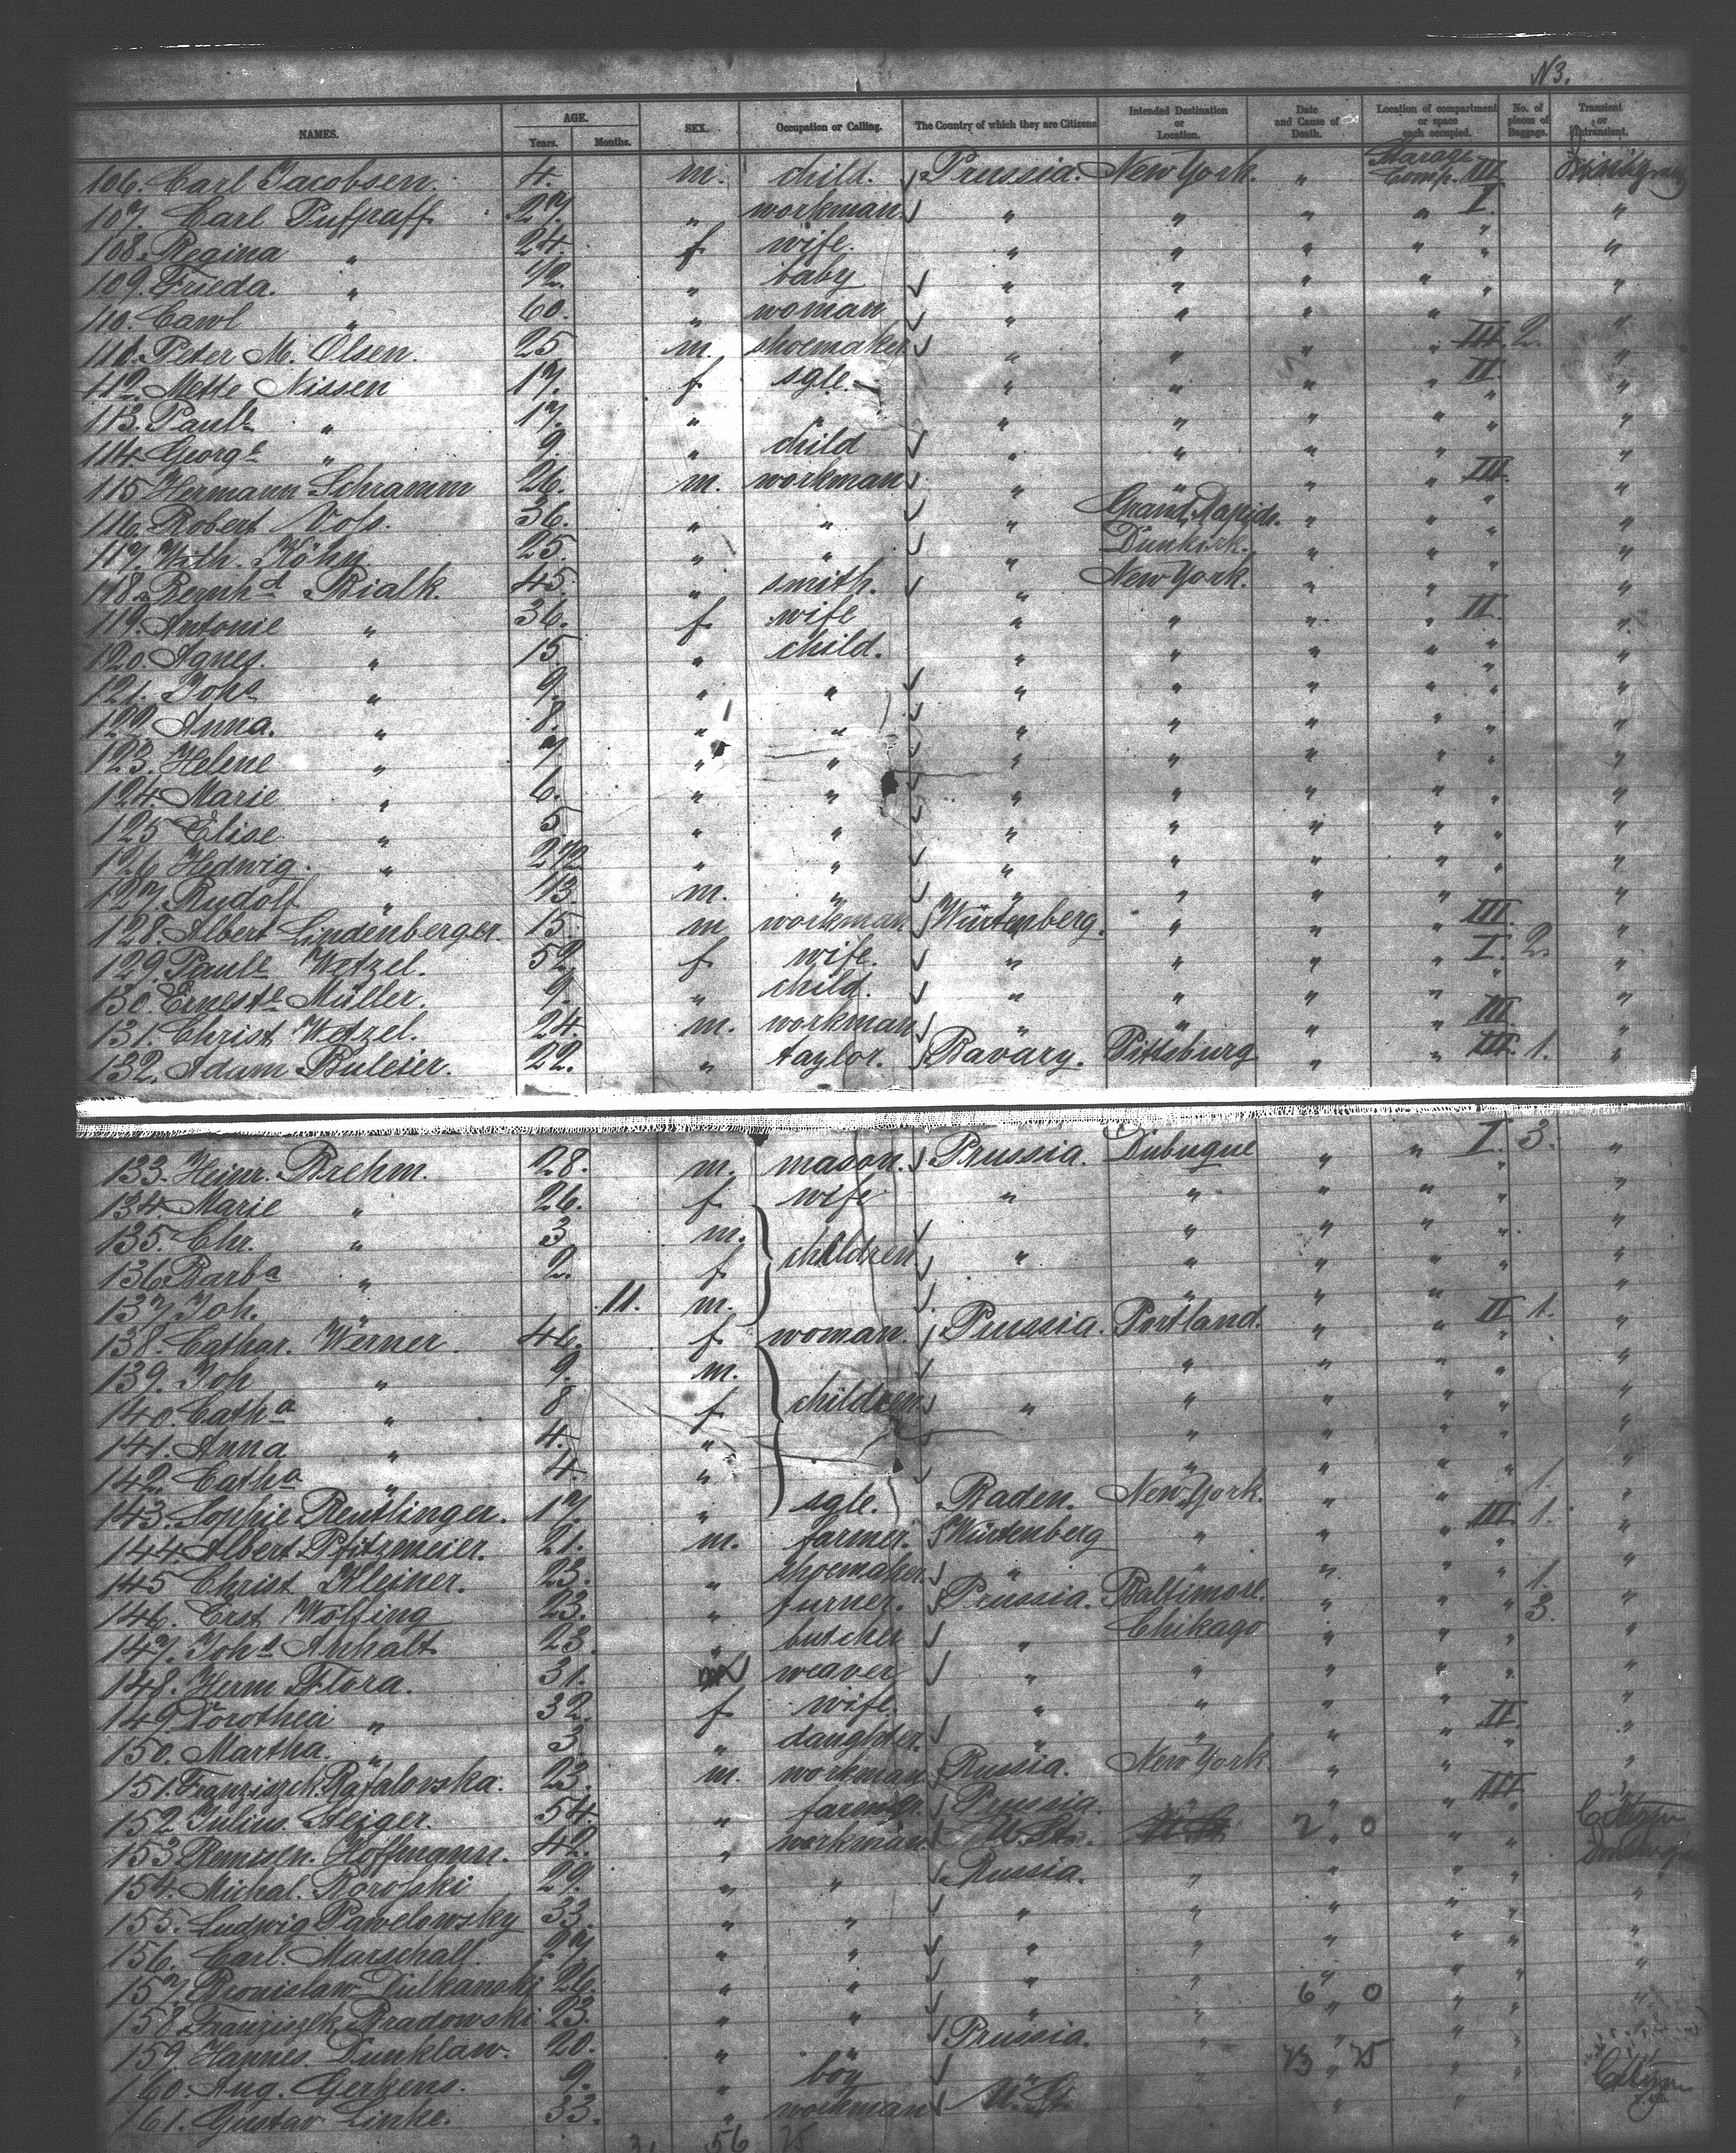 N3.
NAMES. AGE. Years. Months. SEX. Occupation or Calling. The Country of which they are Citizens Intended Destination or Location. Date and Cause of Death. Location of compartment or space each occupied. No. of pieces of Baggage. Transient or
106. Carl Jacobsen. 4. m. child. Prussia. New York. " Comp. III
107. Carl Puffpaff 27. " workman " " " " I. "
108. Regina " 24. f wife. " " " " " "
109. Frieda. " 1/2. " baby " " " " " "
110. " 60. " woman " " " " " "
111. Peter M. Olsen. 25 m. shoemaker " " " " III. 2. "
112. Mette Nissen 17. f sgle. " " " " II. "
113. Paule " 17. " " " " " " " "
114. George " 9. " child " " " " " "
115 Hermann Schramm 26. m. workman " " " " III. "
116. Robert Vofs. 36. " " " Grand Rapids. " " " "
117. Wilh. Köhn 25. " " " Dunkirk. " " " "
118. Bernhd Bialk. 45. " smith. " New York. " " " "
119. Antonie " 36. f wife " " " " II. "
120. Agnes. " 15. " child. " " " " " "
121. Johs " 9. " " " " " " " "
122. Anna. " 8. " " " " " " " "
123. Helene " 7 " " " " " " " "
124. Marie " 6. " " " " " " " "
125 Elise " 5 " " " " " " " "
126 Hedwig. " 2 1/2 " " " " " " " "
127. Rudolf " m. " " " " " " "
128. Albert Lindenberger. 15. m workman Würtenberg. " " " III. "
129. Paule Wetzel. 52 f wife. " " " " I. 2. "
130. Erneste Müller. 9. " child. " " " " " "
131. Christ Wetzel. 24. m. workman " " " " III. "
132. Adam Buleier. 22. " taylor. Bavary. Pittsburg " " III. 1. "
133. Heinr. Brehm. 28. m. mason. Prussia. Dubuque " " I. 3. "
134 Marie " 26. f wife " " " " " "
135. Chr. " 3 m. " " " " "
136 Barba " 2. f children " " " " " "
137. Joh. " 11. m. " " " " "
138. Cathar. Werner. 46. f woman. Prussia. Portland. " " II 1. "
139. Joh " 9. m. " " " " "
140. Catha " 8 f children " " " " " "
141. Anna " 4. " " " " " "
142. Catha " 4. " " " " " "
143. Sophie Reutlinger. 17. " sgle. Baden. New York. " " 1. "
144. Albert Pfitzmeier. 21. m. farmer. Würtenberg " " " III. 1. "
145 Christ Kleiner. 23. " shoemaker. " " " " " "
146. Erst Wölfing 23. " turner. Prussia. Baltimore. " " " 1. "
147. Johs Anhalt 23. " butcher " Chikago " " " 3. "
148. Herm Flora. 31. weaver " " " " " "
149 Dorothea " 32. f wife. " " " " " "
150. Martha. " 3 " daughter. " " " " II. "
151. Franziszek Rafalovska. 23. m. workman Russia. New York " " " "
152 Julius Steiger. 54. " farmer. Prussia. " " " III. "
153 Hoffmann. 42. " workman U. St. 2 " 0 "
154. Michal. Borofski 29. " " Russia. " " " "
155. Ludwig Pawelowsky 33. " " " " " " " "
156. Carl. Marschall. 27 " " " " " " " "
157. Bronislaw Dulkanski 26. " " " " " " " "
158. Franziszek Bradowski 23. " " " " 6 " 0 " " "
159. Hannes Dunklaw. 20. " " Prussia. " " " "
160. Aug. Gerkens. 9. " boy " " 73 " 75 " "
161. Gustav Linke. 33. " workman U. St. " " "
56 75